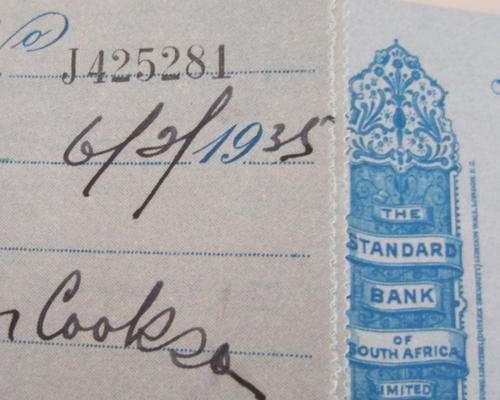 No
J425281
6/2/1935
Cookso
THE
STANDARD
BANK
OF
SOUTH AFRICA
LIMITED